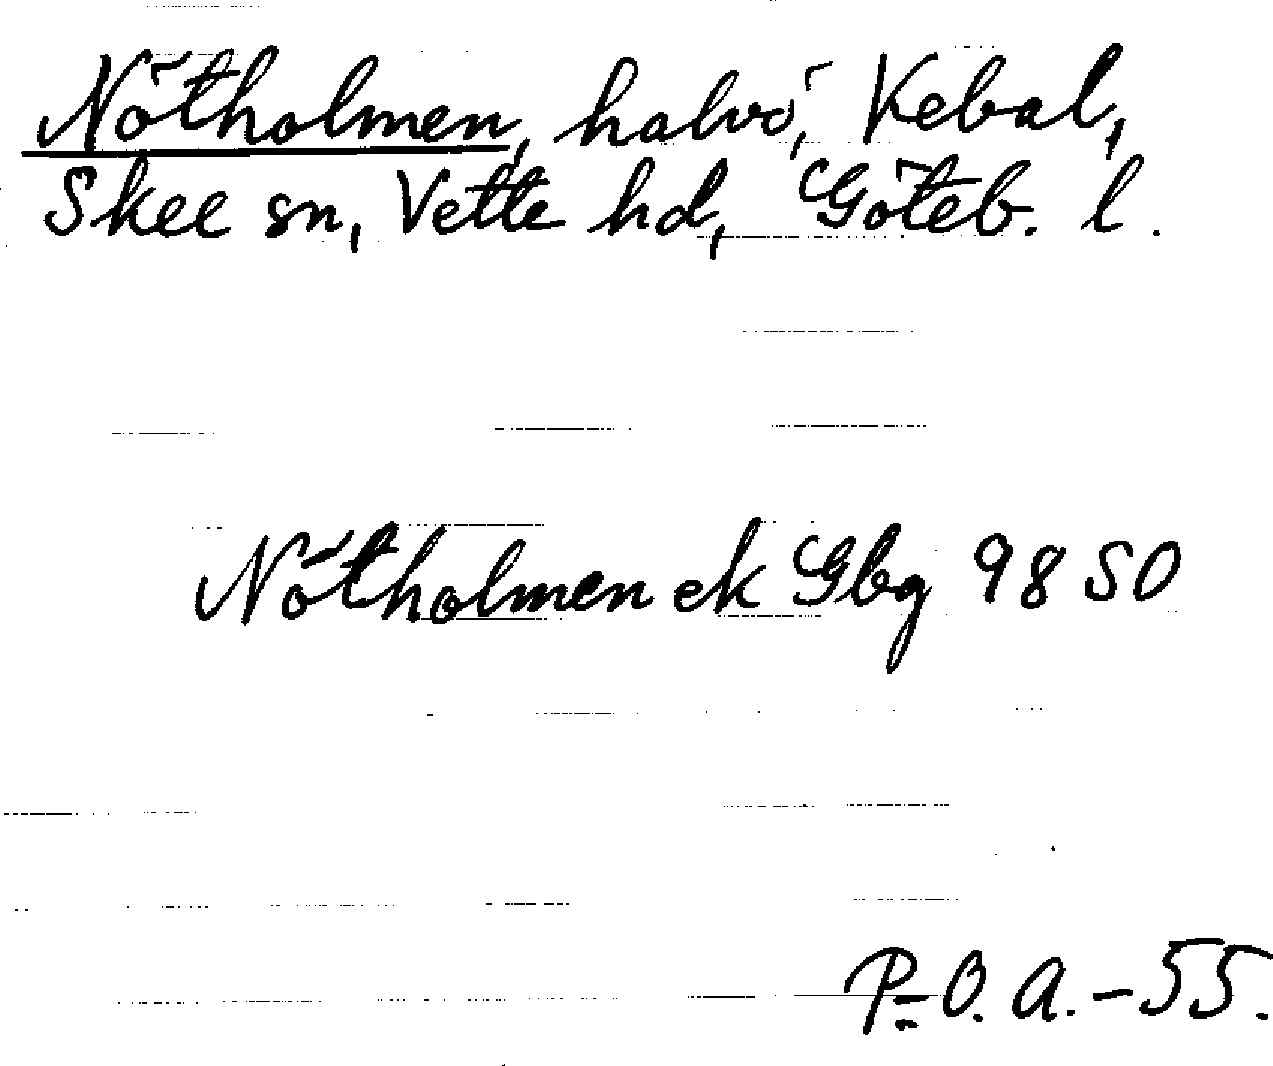 Nötholmen, halvö, Kebal,
Skee sn, Vette hd, Göteb. l.
Nötholmen ek Gbg 98 SO
P-O. A. - 55.